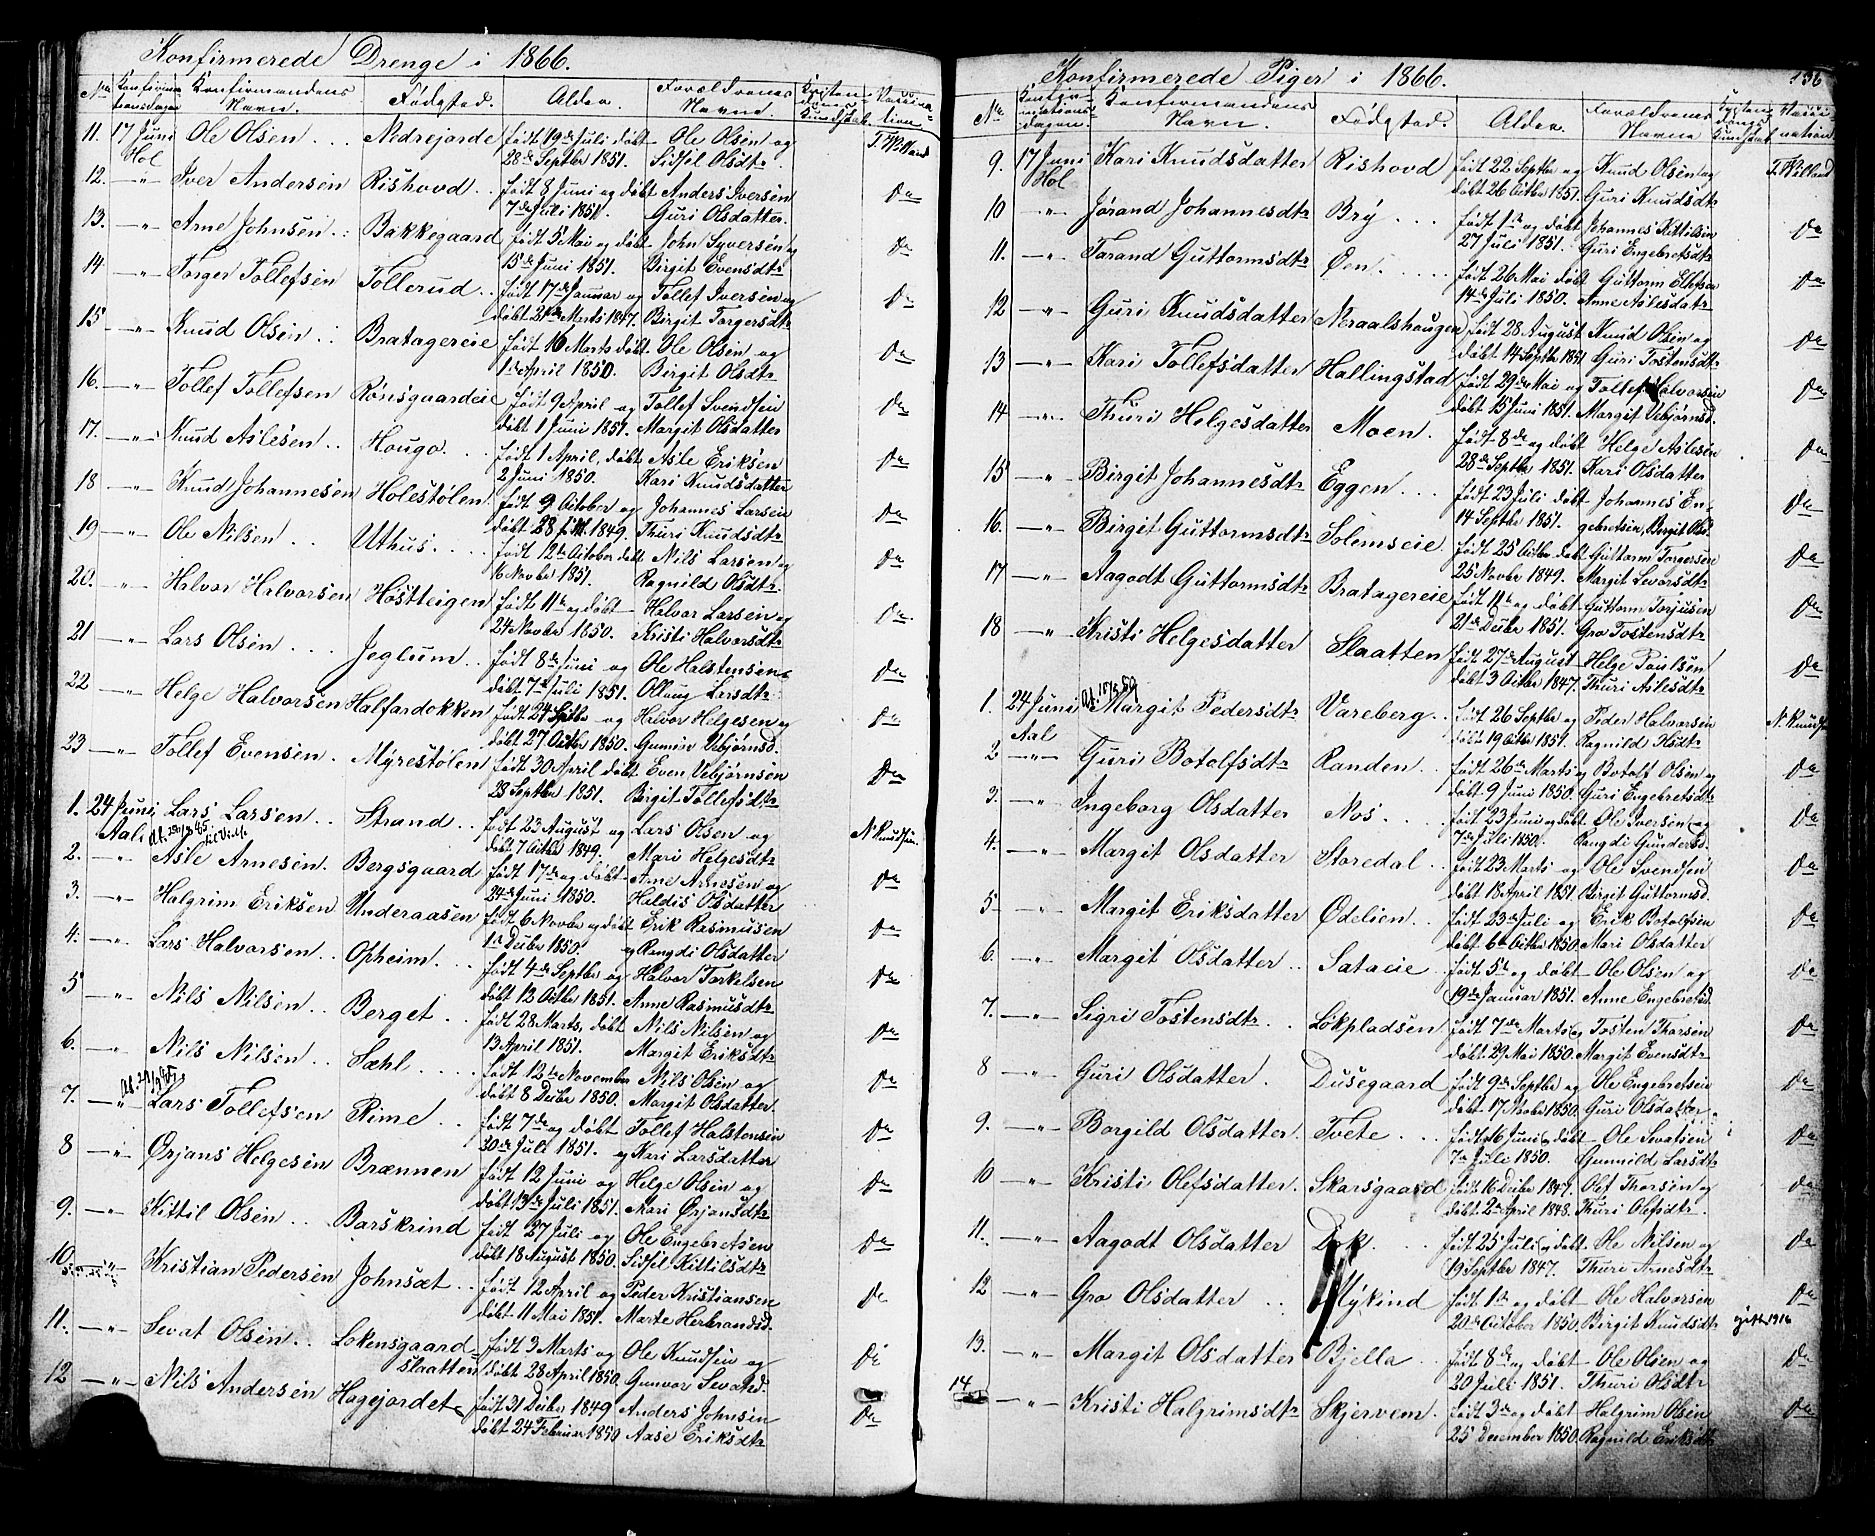 Konfirmerede Drenge i 1866.
No Konfirmationsdagen Konfirmandens Navn. Fødested. Alder. Forældrenes Navne. Kristendoms Kundskab Vaccination.
11. 17 Juni Ole Olsen Nedrejorde født 19de Juli døbt Ole Olsen og T. Willand
Hol 28de Septbr 1851. Sidsel Olsdtr
12. -"- Iver Andersen Rishovd født 8 Juni og døbt Anders Iversen Do
7de Juli 1851. Guri Olsdatter.
13. -"- Arne Johnsen Bakkegaard født 5 Mai og døbt John Syversen og Do
15de Juni 1851. Birgit Evensdtr
14 -"- Torger Tollefsen Tollerud født 17de Januar og Tollef Iversen og Do
døbt 21de Marts 1847. Birgit Torgersdtr
15 -"- Knud Olsen Bratagereie født 16 Marts døbt Ole Olsen og Do
1de April 1850. Birgit Olsdtr
16. -"- Tollef Tollefsen Rønsgaardeie født 9 April og Tollef Svendsen Do
døbt 1 Juni 1851. Margit Olsdatter
17. -"- Knud Aslesen Hougo født 1 April, døbt Asle Eriksen Do
2 Juni 1850. Kari Knudsdatter
18 -"- Knud Johannesen Holestølen født 9 October og Johannes Larsen Do
døbt 28 1849. Thuri Knudsdtr
19 -"- Ole Nilsen Uthus født 12te October døbt Nils Larsen og Do
16 Novbr 1851. Ragnild Olsdtr
20. -"- Halvor Halvorsen Høstteigen født 11te og døbt Halvor Larsen og Do
24 Novbr 1850. Kristi Halvorsdtr
21 -"- Lars Olsen Jeglum født 8de Juni og Ole Halstensen Do
døbt 7de Juli 1851. Ollaug Larsdtr
22 -"- Helge Halvorsen Halfardokken født 24 Septbr og Halvor Helgesen og Do
døbt 27 Octbr 1850. Gunvor Vebjørnsd.
23 -"- Tollef Evensen Myrestølen født 30 April døbt Even Vebjørnsen Do
28 Septbr 1851. Birgit Tollefsdtr
1. 24 Juni Lars Larsen Strand født 23 August og Lars Olsen og N Knudsen
Aal døbt 7 Octbr 1849. Mari Helgesdtr
2. -"- Asle Arnesen Bergsgaard født 17de og døbt Arne Arnesen og Do
24de Juni 1850. Haldis Olsdatter
3. -"- Halgrim Eriksen Underaasen født 6 Novbr og døbt Erik Rasmusen Do
1de Decbr 1850. og Rangdi Olsdatter
4. -"- Lars Halvorsen Opheim født 4de Septbr og Halvor Torkelsen Do
døbt 12 Octbr 1851. Anne Rasmusdtr
5 -"- Nils Nilsen Berget født 28 Marts, døbt Nils Nilsen og Do
13 April 1851. Margit Eriksdtr
6. -"- Nils Nilsen Sæhl født 12te November Nils Olsen og Do
døbt 8 Decbr 1850. Margit Olsdatter.
7. -"- Lars Tollefsen Rime født 7de og døbt Tollef Halstensen Do
20de Juli 1851. og Kari Larsdatter
8 -"- Ørjans Helgesen Brænnen født 12 Juni og Helge Olsen og Do
døbt 13de Juli 1851. Mari Ørjansdtr
9. -"- Kittil Olsen Barskrind født 27 Juli og Ole Engebretsen Do
døbt 18 August 1850. Sidsel Kittilsdtr
10. -"- Kristian Pedersen Johnsæt født 12 April og Peder Kristiansen Do
døbt 11 Mai 1851. Marte Herbrandsd.
11. -"- Sevat Olsen Løkensgaard født 3 Marts og Ole Knudsen og Do
slaatten døbt 28 April 1850. Gunvor Sevatsd.
12 -"- Nils Andersen Hagejordet født 31 Decbr 1849 Anders Johnsen Do
døbt 24 Februar 1850 Aase Eriksdtr
Konfirmerede Piger i 1866. 136
No Konfirmationsdagen. Konfirmandens Navn. Fødested. Alder. Forældrenes Navne Kristendoms Kundskab Vaccination
9. 17 Juni Kari Knudsdatter Rishovd født 22 Septbr og Knud Olsen og T. Willand
Hol døbt 26 Octbr 1851. Guri Knudsdtr
10 -"- Jørand Johannesdtr Bry født 1de og døbt Johannes Kittilsen Do
27 Juli 1851. Guri Engebretsdtr
11. -"- Tarand Guttormsdtr Øen født 26 Mai døbt Guttorm Ellefsen Do
14de Juli 1850. Anne Aslesdatr
12 -"- Guri Knudsdatter Neraalshaugen født 28 August Knud Olsen og Do
døbt 14 Septbr 1851 Guri Tostensdtr
13 -"- Kari Tollefsdatter Hallingstad født 29de Mai og Tollef Halvorsen Do
døbt 15 Juni 1851. Margit Vebjørnsd.
14 -"- Thuri Helgesdatter Moen født 8de og døbt Helge Aslesen Do
28de Septbr 1851. Kari Olsdatter
15 -"- Birgit Johannesdtr Eggen født 23 Juli døbt Johannes En- Do
14 Septbr 1851. gebretsen, Birgit Olsd.
16. -"- Birgit Guttormsdtr Solemseie født 25 Octbr døbt Guttorm Torgersen Do
25 Novbr 1849. Margit Sevorsdtr
17 -"- Aagodt Guttormsdtr Bratagereie født 11te og døbt Guttorm Torjusen Do
21de Decbr 1851. Gro Tostensdtr
18 -"- Kristi Helgesdatter Slaatten født 27de August Helge Paulsen Do
døbt 3 Octbr 1847. Thuri Aslesdtr
1. 24 Juni Margit Pedersdtr Vareberg født 26 Septbr og Peder Halvorsen N. Knudsen
Aal døbt 19 Octbr 1851. Ragnild
2 -"- Guri Botolfsdtr Randen født 26de Marts og Botolf Olsen og Do
døbt 9 Juni 1850. Guri Engebretsdtr
3. -"- Ingeborg Olsdatter Nos født 23 Juni og døbt Ole Iversen og Do
7de Juli 1850. Rangdi Gundersd.
4. -"- Margit Olsdatter Storedal født 23 Marts og Ole Svendsen Do
døbt 18 April 1851 Birgit Guttormsd.
5 -"- Margit Eriksdatter Ødelien født 23de Juli og Erik Botolfsen Do
døbt 6te Octbr 1850. Mari Olsdatter
6. -"- Margit Olsdatter Sataeie født 5te og døbt Ole Olsen og Do
19de Januar 1851. Anne Engebretsd.
7. -"- Sigri Tostensdtr Løkpladsen født 7de Marts og Tosten Thorsen Do
døbt 29 Mai 1850. Margit Evensdtr
8 -"- Guri Olsdatter Dusegaard født 9de Septbr og Ole Engebretsen Do
døbt 17 Novbr 1850. Guri Olsdatter
9. -"- Borgild Olsdatter Tvete født 16 Juni og døbt Ole Sevatsen Do
7de Juli 1850. Gunnild Larsdtr
10 -"- Kristi Olefsdatter Skarsgaard født 16 Decbr 1847. Olef Thorsen og Do
døbt 2de April 1848. Thuri Olefsdtr
11. -"- Aagodt Olsdatter født 25 Juli og døbt Ole Nilsen og Do
19 Septbr 1847. Thuri Arnesdtr
12 -"- Gro Olsdatter Mykind født 1de og døbt Ole Halvorsen Do
20de October 1850. Birgit Knudsdtr gift 1916
13. -"- Margit Olsdatter Bjella født 8de og døbt Ole Olsen og Do
20 Juli 1851. Thuri Olsdtr
14 -"- Kristi Halgrimsdtr Skjervem født 3de og døbt Halgrim Olsen Do
25 December 1850. Ragnild Eriksdtr